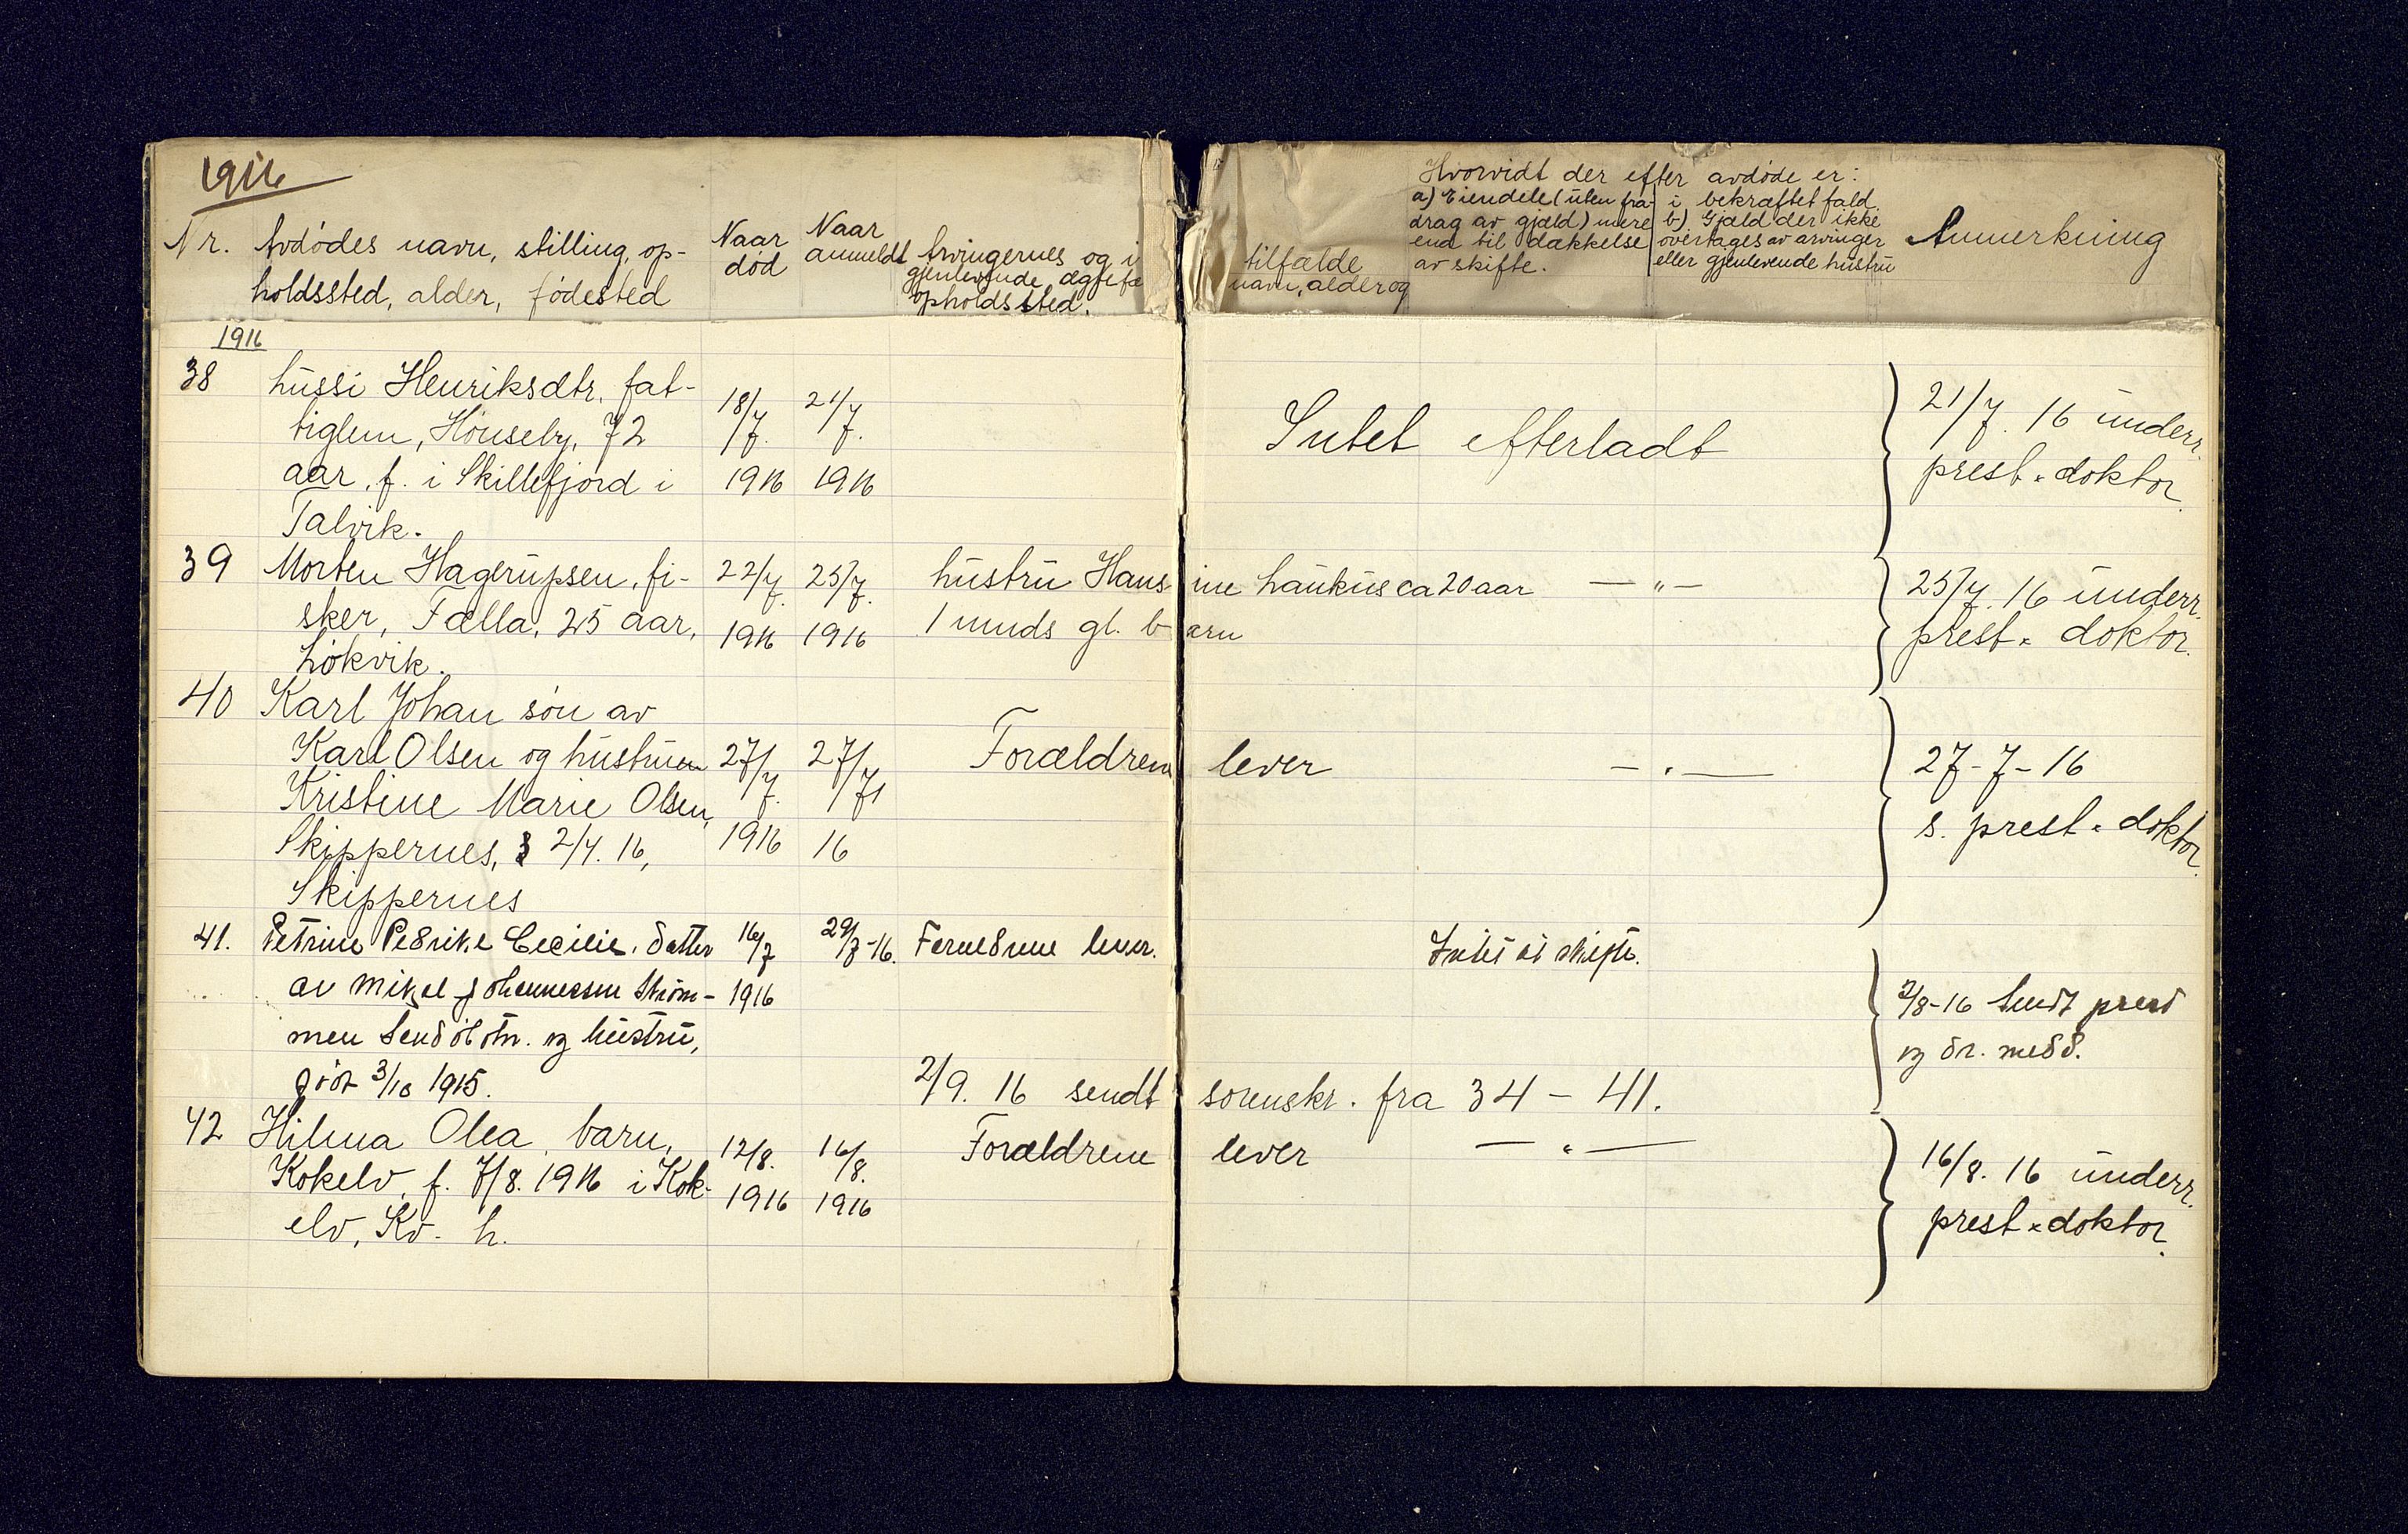 1916
Nr. Avdödes navn, stilling, op-
holdssted, alder, födested
Naar
död
Naar
anmeldt
Arvingernes og i
gjenlevende ægtefæ
opholdssted.
tilfælde
navn, alder og
Hvorvidt der efter avdøde er:
a) Eiendele (uten fra-
drag av gjæld) mere
end til dækkelse
av skifte.
i bekræftet fald.
b) Gjæld der ikke
overtages av arvinger
eller gjenlevende hustru
Anmerkning
1916
38 Lussi Henriksdtr. fat-
tiglem, Hönseby, 72
aar, f. i Skillefjord i
Talvik.
18/7.
1916
21/7.
1916
Intet efterladt
21/7. 16 underr.
prest & doktor.
39 Morten Hagerupsen, fi-
sker, Fælla, 25 aar,
Lökvik.
22/7.
1916
25/7.
1916
hustru Hansine Haukus ca 20 aar — " —
1 mnds gl. barn
25/7. 16 underr.
prest & doktor.
40 Karl Johan sön av
Karl Olsen og hustruen
Kristine Marie Olsen,
Skippernes, 2/4. 16,
Skippernes
27/7.
1916
27/7
16
Forældrene lever — " —
27-7-16
s. prest & doktor.
41. Petrine Pedrike Cecilie. datter
av Mikal Johannessen Ström-
men Sendölotn. og hustru,
födt 3/10 1915.
16/7
1916
29/7-16.
Foreldrene lever.
Intet at skifte.
2/8-16 Sendt prest
og dr. medd.
2/9. 16 sendt sorenskr. fra 34 - 41.
42 Hilma Olea, barn,
Kokelv, f. 7/8. 1916 i Kok-
elv, Kv. h.
12/8.
1916
16/8.
1916
Forældrene lever — " —
16/8. 16 underr.
prest & doktor.